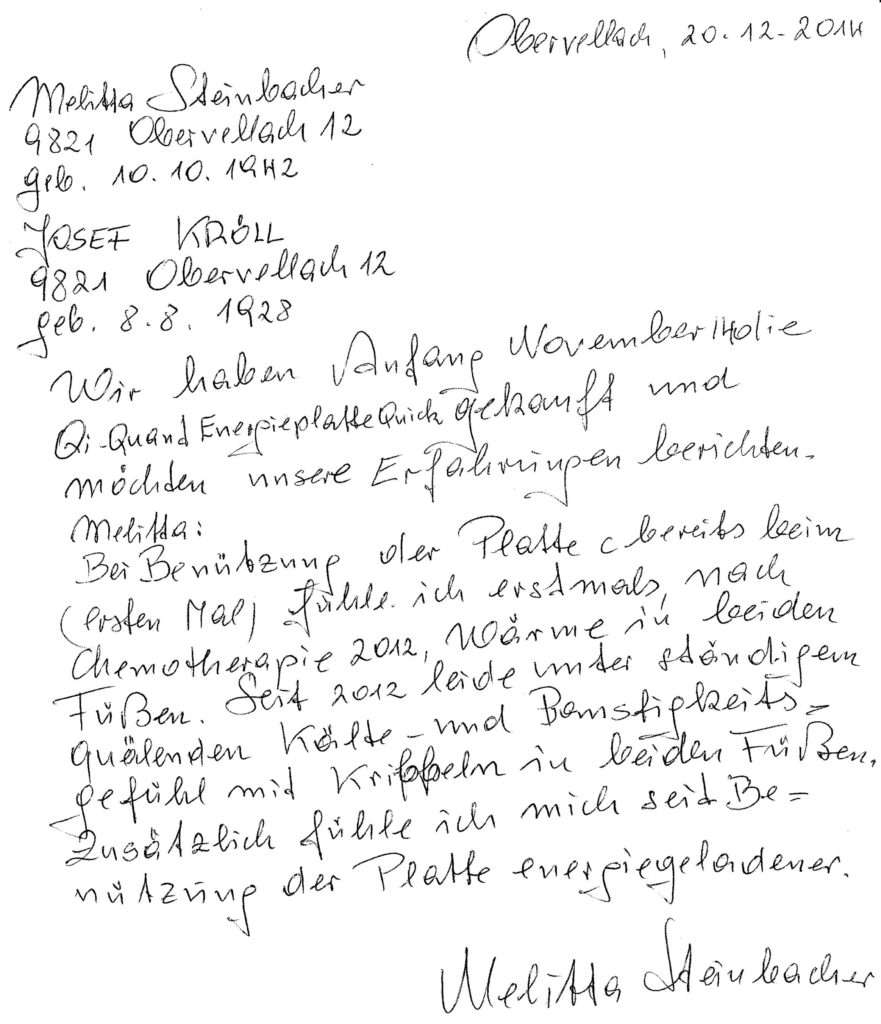 Obervellach, 20.12.2014
Melitta Steinbacher
9821 Obervellach 12
geb. 10.10.1942
JOSEF KRÖLL
9821 Obervellach 12
geb. 8.8.1928
Wir haben Anfang November 14 die
Qi-Quand Energieplatte Quick gekauft und
möchten unsere Erfahrungen berichten.
Melitta:
Bei Benützung der Platte (bereits beim
(ersten Mal) fühle ich erstmals, nach
Chemotherapie 2012, Wärme in beiden
Füßen. Seit 2012 leide unter ständigem
quälenden Kälte- und Bamstigkeits=
gefühl mit Kribbeln in beiden Füßen.
Zusätzlich fühle ich mich seit Be=
nützung der Platte energiegeladener.
Melitta Steinbacher